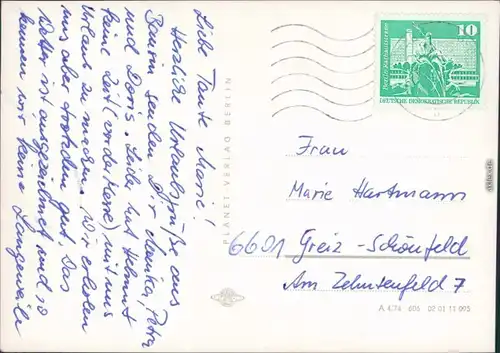 Liebe Tante Marie!
Herzliche Urlaubsgrüße aus
senden Dir Monika, Petra
und Doris. Leider hat Helmut
keine Zeit (vor der Messe) mit uns
Urlaub zu machen. Wir erholen
uns aber trotzdem gut. Das
Wetter ist ausgezeichnet und so
kennen wir keine Langeweile
PLANET-VERLAG BERLIN
10
DEUTSCHE DEMOKRATISCHE REPUBLIK
Frau
Marie Hartmann
6601 Greiz-Schönfeld
Am Zehntenfeld 7